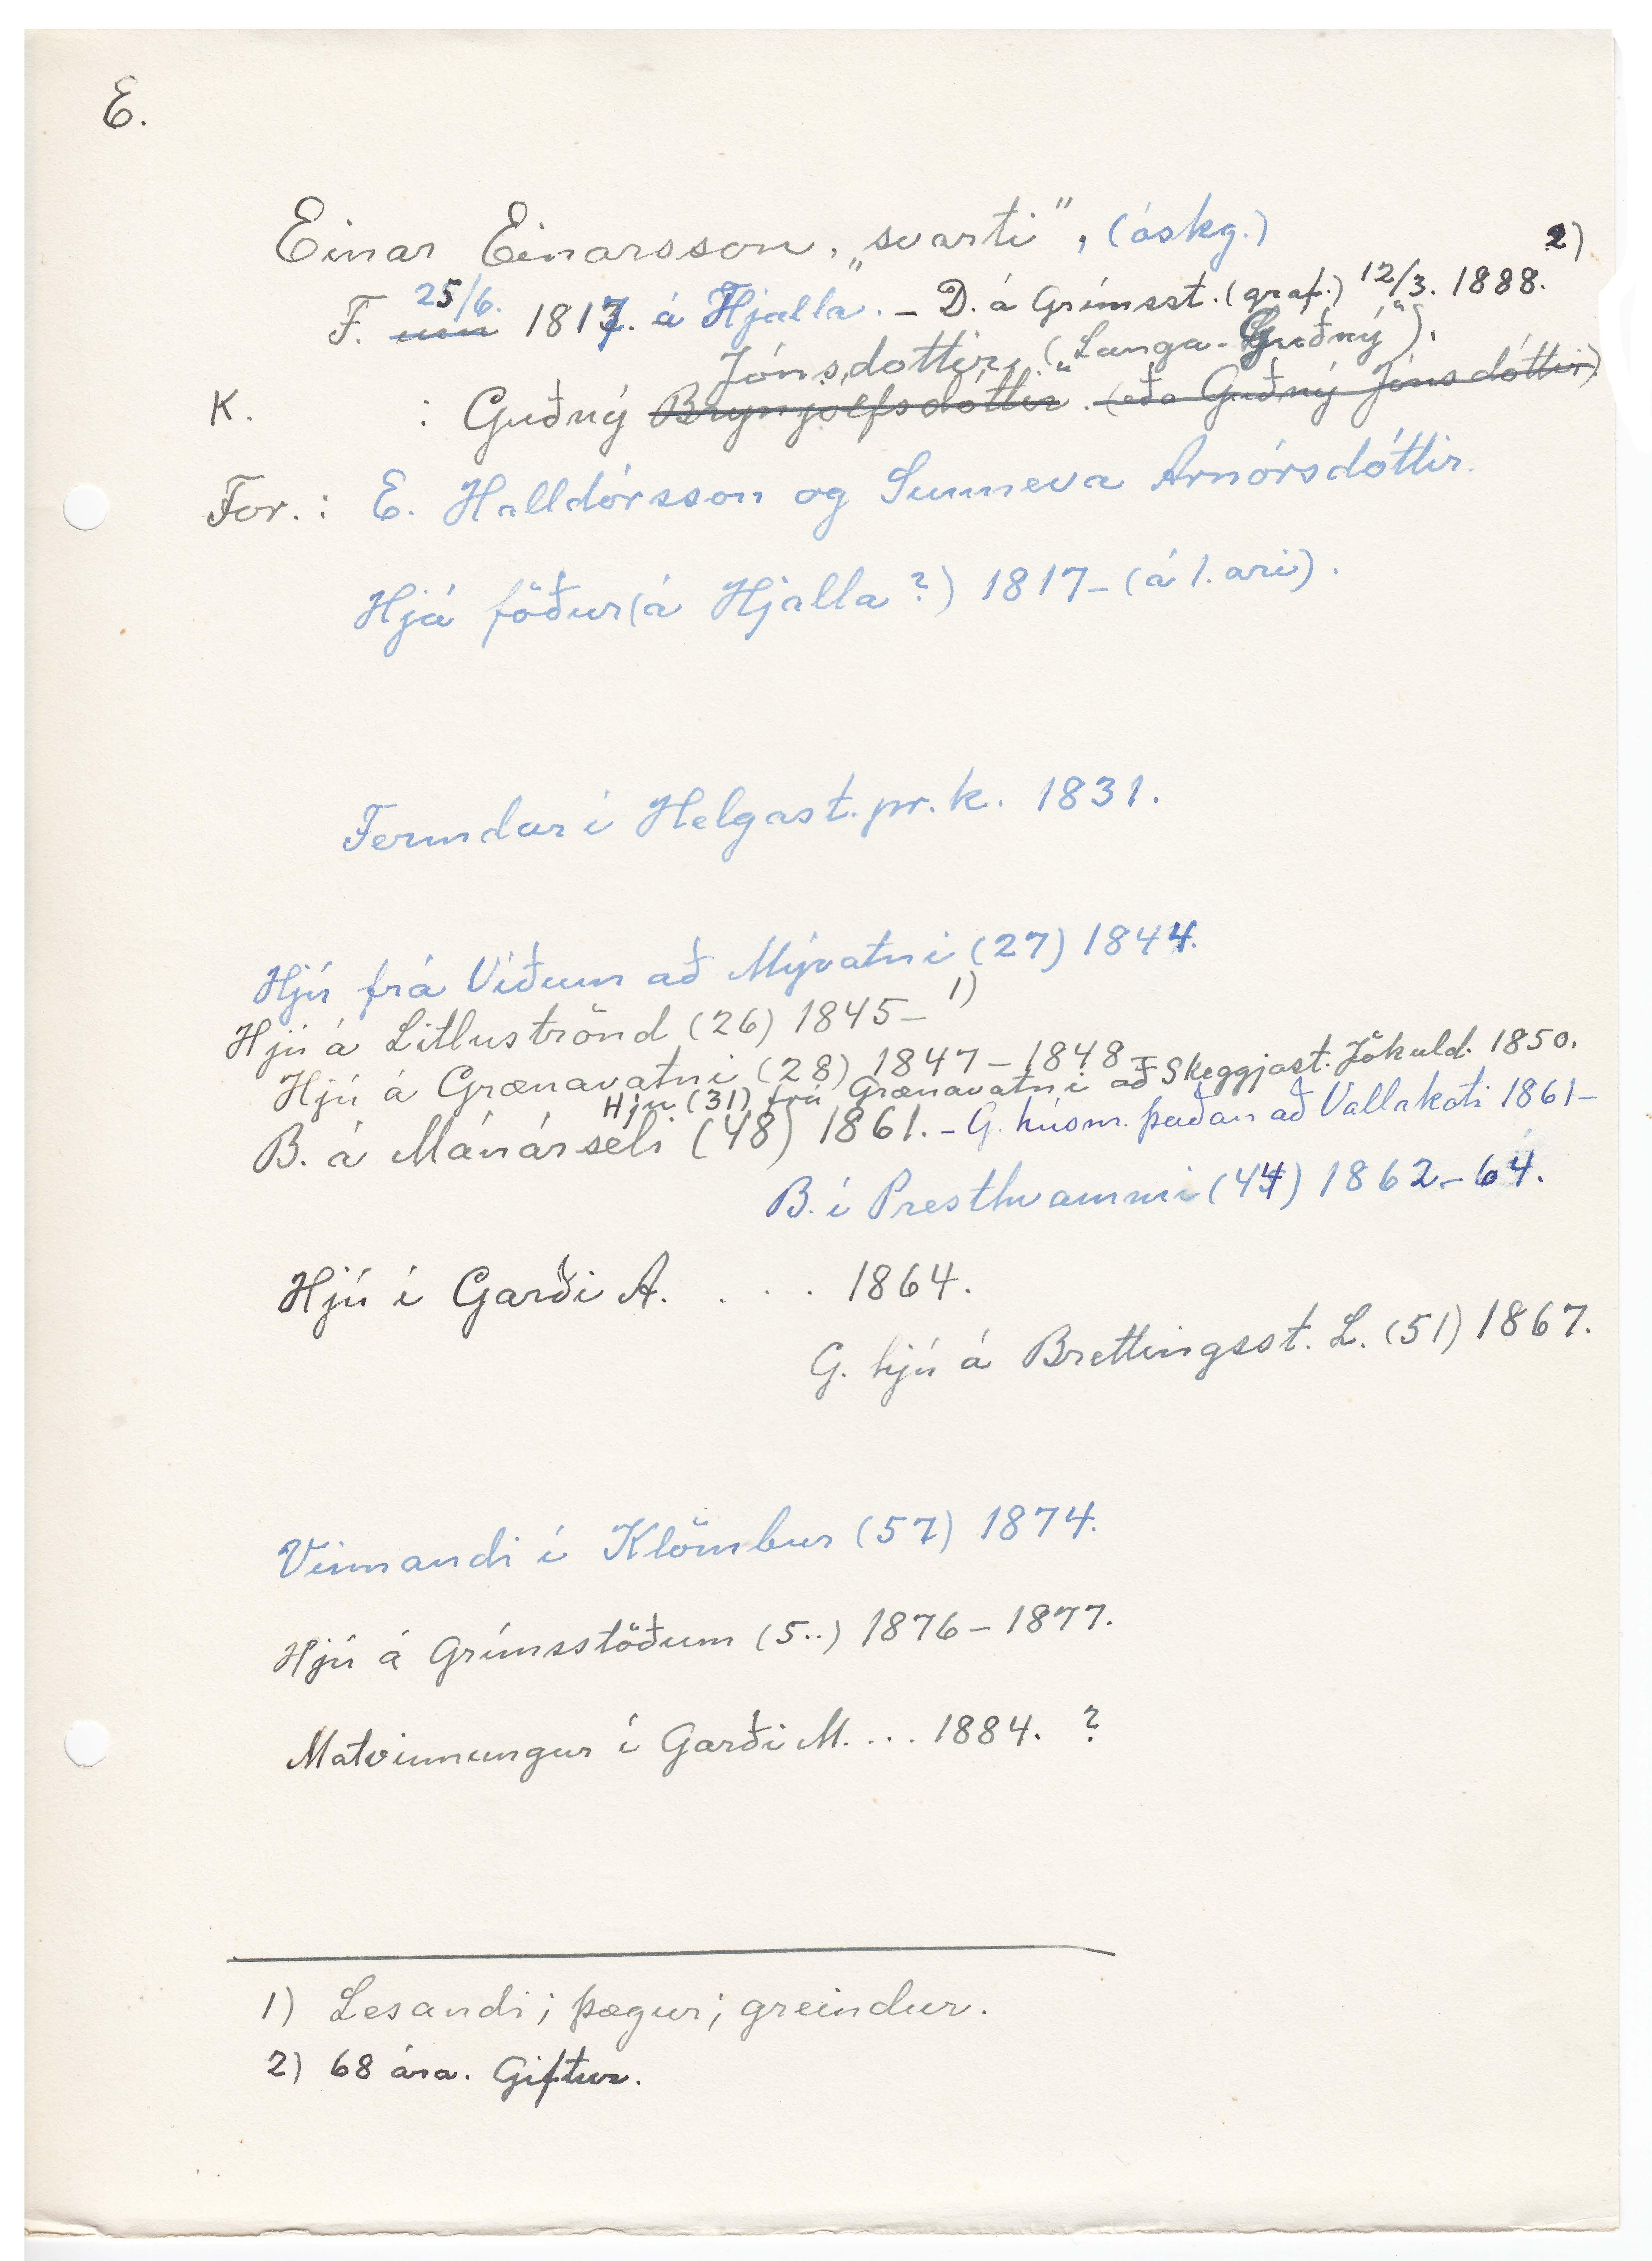 E.
Einar Einarsson, „svarti", (óskg.)
F. um 25/6. 1817. á Hjalla. – D. á Grímsst. (graf.) 12/3. 1888. 2)
Jónsdóttir, („Langa-Guðný").
K. : Guðný Brynjólfsdóttir. (eða Guðný Jónsdóttir)
For.: E. Halldórsson og Sunneva Arnórsdóttir.
Hjá föður (á Hjalla?) 1817– (á 1. ári).
Fermdur í Helgast.pr.k. 1831.
Hjú frá Víðum að Mývatni (27) 1844.
Hjú á Litluströnd (26) 1845– 1)
Hjú á Grænavatni (28) 1847–1848 –
Hjú (31) frá Grænavatni að Skeggjast. Jökuld. 1850.
B. á Mánárseli (48) 1861. – G. húsm. þaðan að Vallakoti 1861–
B. í Presthvammi (44) 1862–64.
Hjú í Garði A. . . . 1864.
G. hjú á Brettingsst. L. (51) 1867.
Vinnandi í Klömbur (57) 1874.
Hjú á Grímsstöðum (5..) 1876–1877.
Matvinnungur í Garði M. ... 1884. ?
1) Lesandi; þægur; greindur.
2) 68 ára. Giftur.